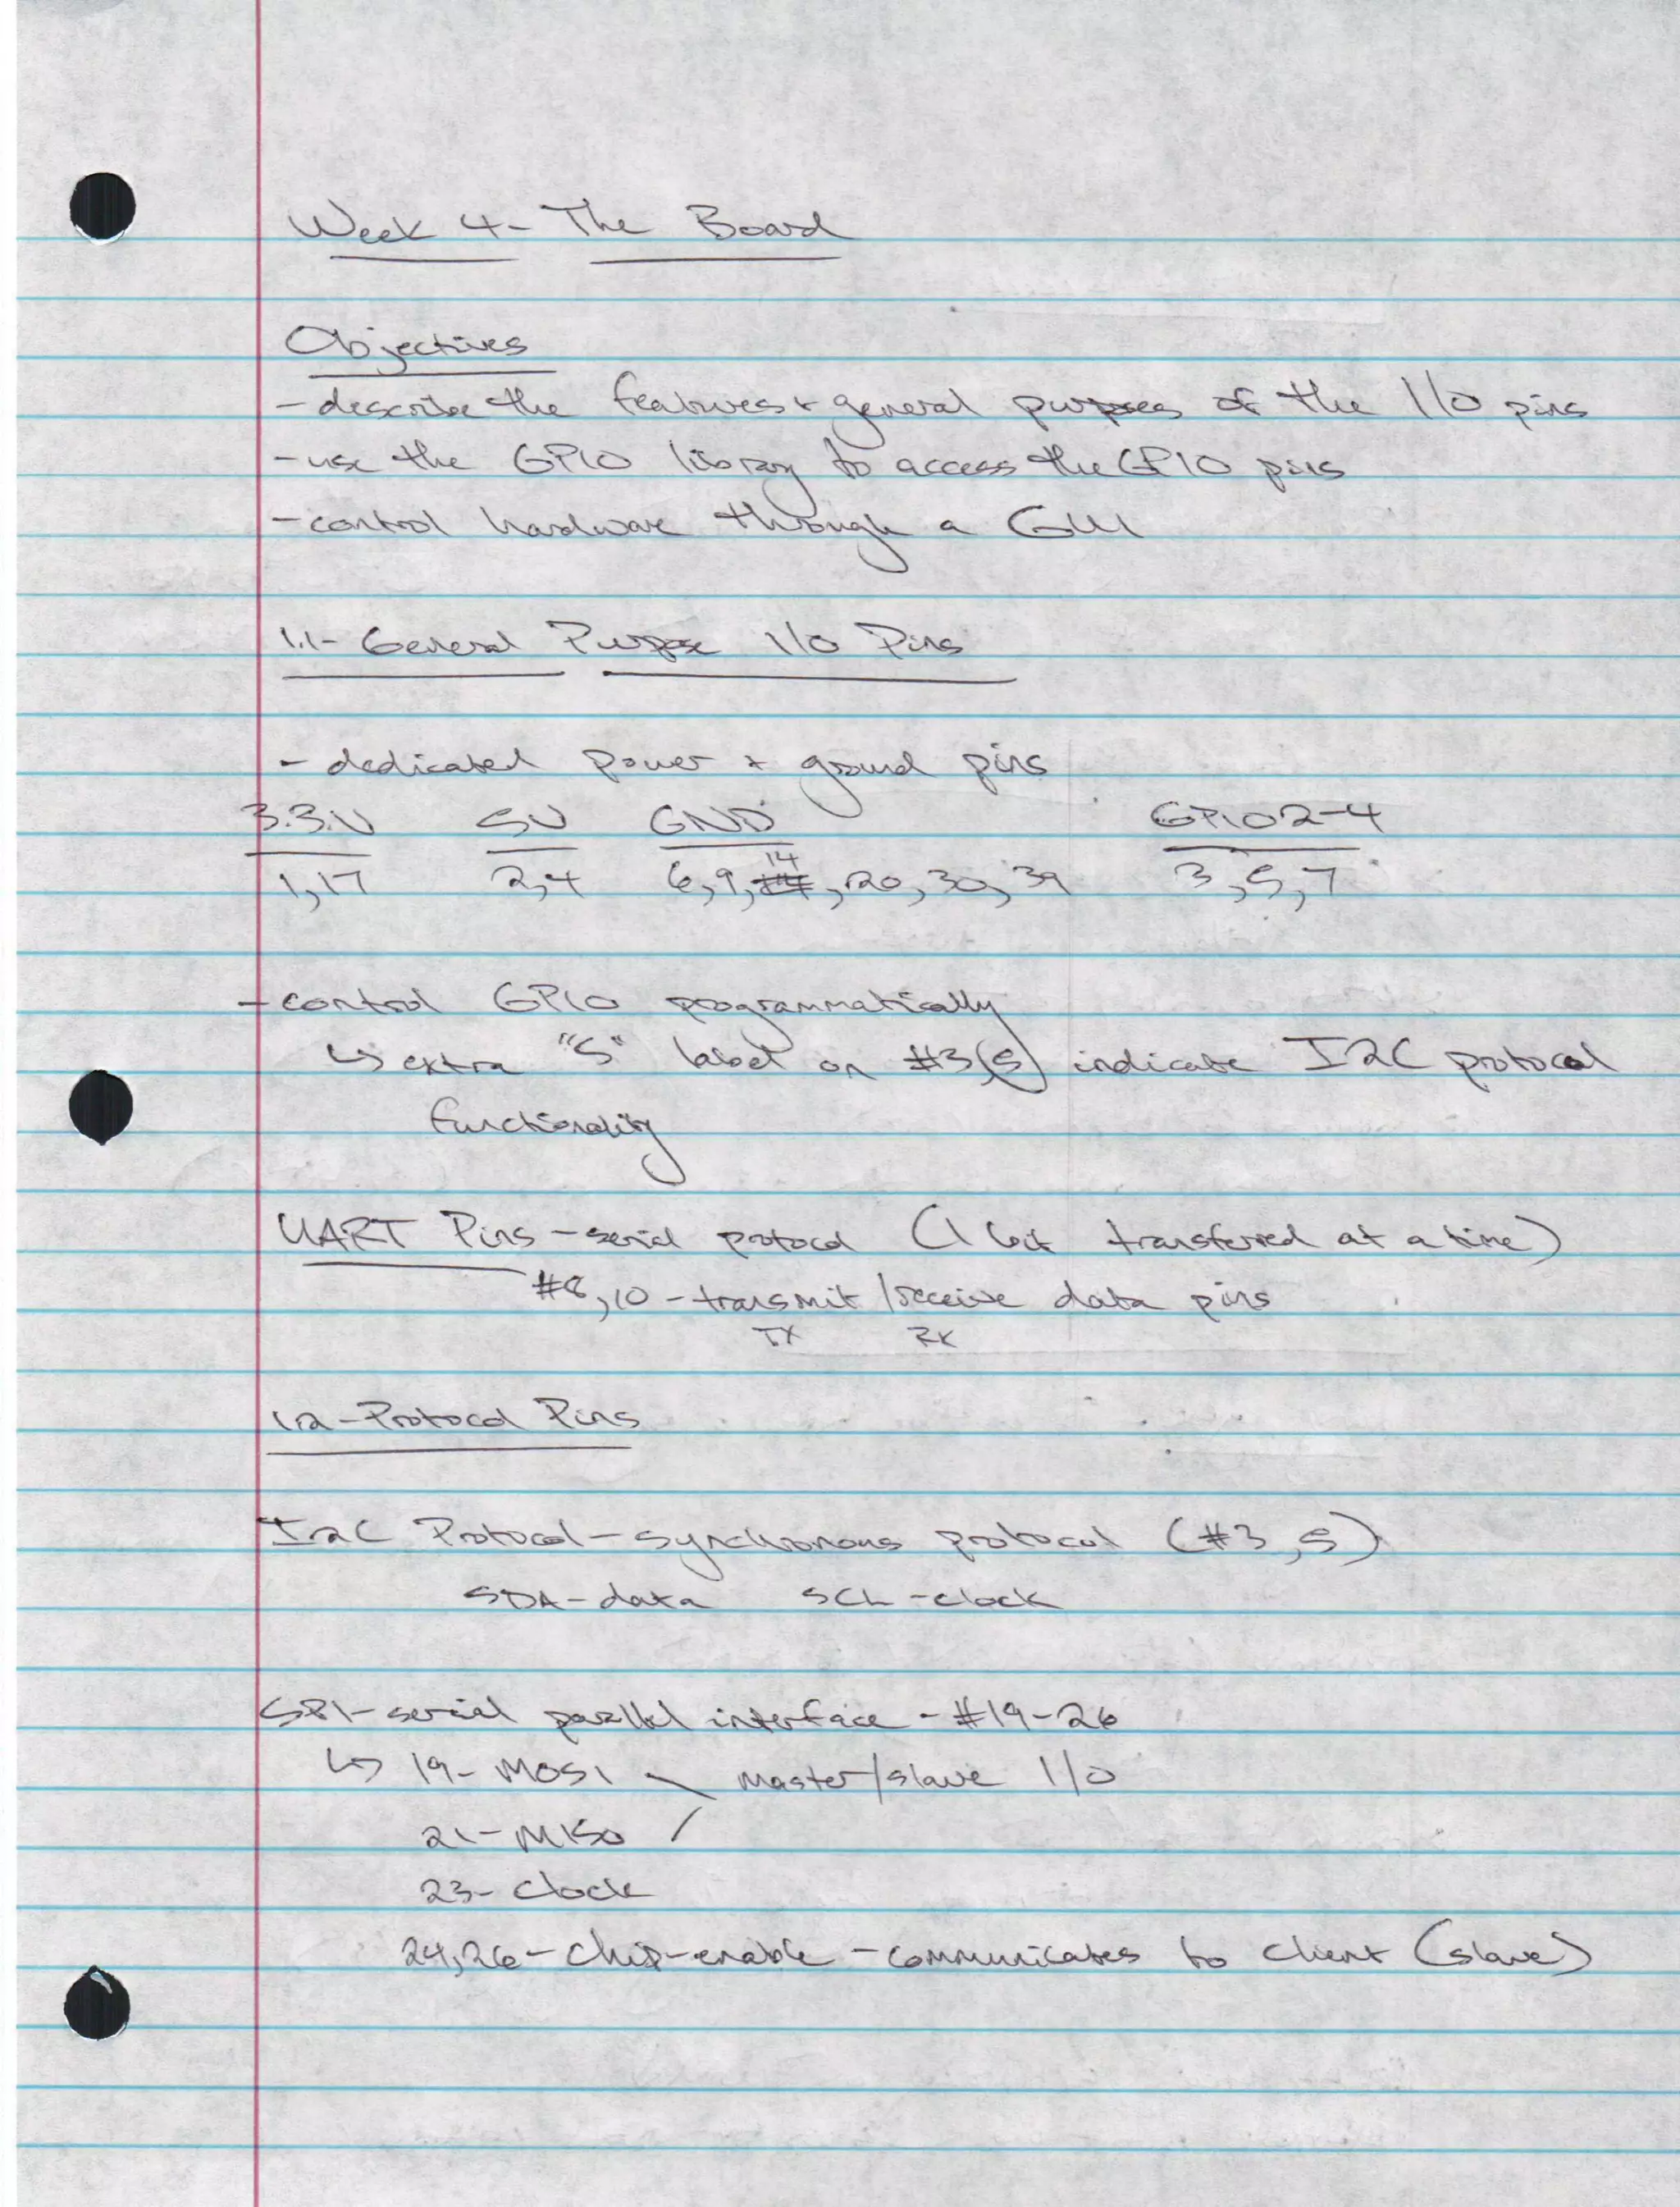 Week 4- The Board
Objectives
- describe the features + general purposes of the I/O pins
- use the GPIO library to access the GPIO pins
- control hardware through a GUI
1.1- General Purpose I/O Pins
- dedicated power + ground pins
3.3V 5V GND GPIO2-4
1,17 2,4 6,9,14,20,30,39 3,5,7
- control GPIO programmatically
↳ extra "S" label on #3(5) indicate I2C protocol
functionality
UART Pins - serial protocol (1 bit transferred at a time)
#8,10 - transmit/receive data pins
TX RX
1.2- Protocol Pins
I2C Protocol - synchronous protocol (#3,5)
SDA - data SCL - clock
SPI - serial parallel interface - #19-26
↳ 19- MOSI \ master/slave I/O
21- MISO /
23- Clock
24,26 - chip-enable - communicates to client (slave)